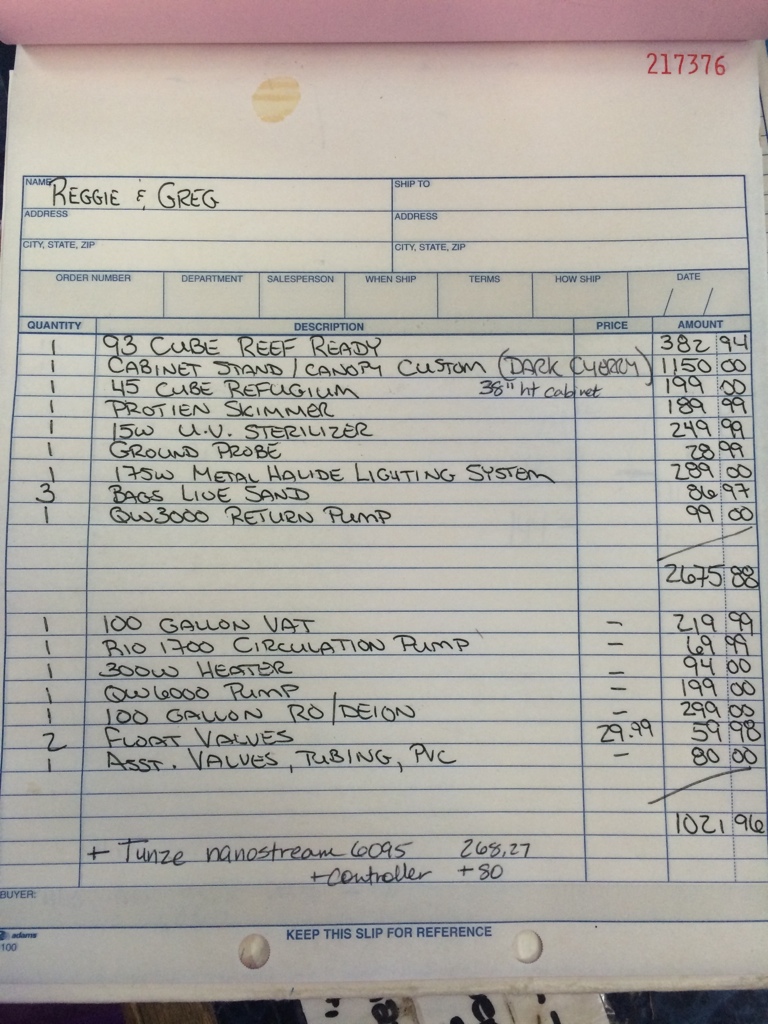 217376
NAME REGGIE & GREG SHIP TO
ADDRESS ADDRESS
CITY, STATE, ZIP CITY, STATE, ZIP
ORDER NUMBER DEPARTMENT SALESPERSON WHEN SHIP TERMS HOW SHIP DATE
/ /
QUANTITY DESCRIPTION PRICE AMOUNT
1 93 CUBE REEF READY 382 94
1 CABINET STAND / CANOPY CUSTOM (DARK CHERRY) 1150 00
1 45 CUBE REFUGIUM 38" ht cabinet 199 00
1 PROTIEN SKIMMER 189 99
1 15W U.V. STERILIZER 249 99
1 GROUND PROBE 28 99
1 175W METAL HALIDE LIGHTING SYSTEM 289 00
3 BAGS LIVE SAND 86 97
1 QW3000 RETURN PUMP 99 00
2675 88
1 100 GALLON VAT – 219 99
1 RIO 1700 CIRCULATION PUMP – 69 99
1 300W HEATER – 94 00
1 QW6000 PUMP – 199 00
1 100 GALLON RO/DEION – 299 00
2 FLOAT VALVES 29.99 59 98
1 ASST. VALVES, TUBING, PVC – 80 00
1021 96
+ Tunze nanostream 6095 268.27
+controller +80
BUYER:
adams
100
KEEP THIS SLIP FOR REFERENCE